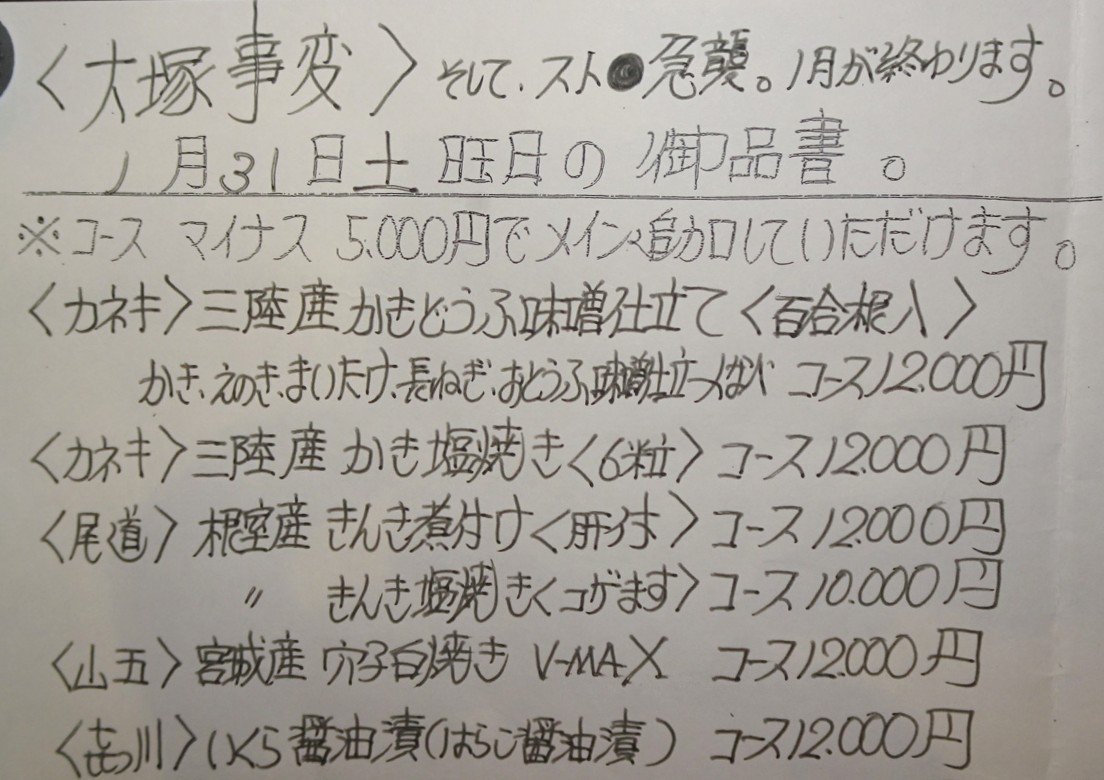 〈大塚事変〉そして、スト●急襲。1月が終わります。
1月31日土曜日の御品書。
※コース マイナス 5.000円でメイン追加していただけます。
〈カネキ〉三陸産かきどうふ味噌仕立て〈百合根入〉
かき、えのき、まいたけ、長ねぎ、おとうふ味噌仕立つなべ コース12.000円
〈カネキ〉三陸産 かき塩焼き〈6粒〉コース12.000円
〈尾道〉根室産 きんき煮付け〈肝付〉コース12.000円
〃 きんき塩焼き〈コゲます〉コース10.000円
〈山五〉宮城産 穴子白焼き V-MAX コース12.000円
川〉いくら醤油漬(はらこ醤油漬) コース12.000円